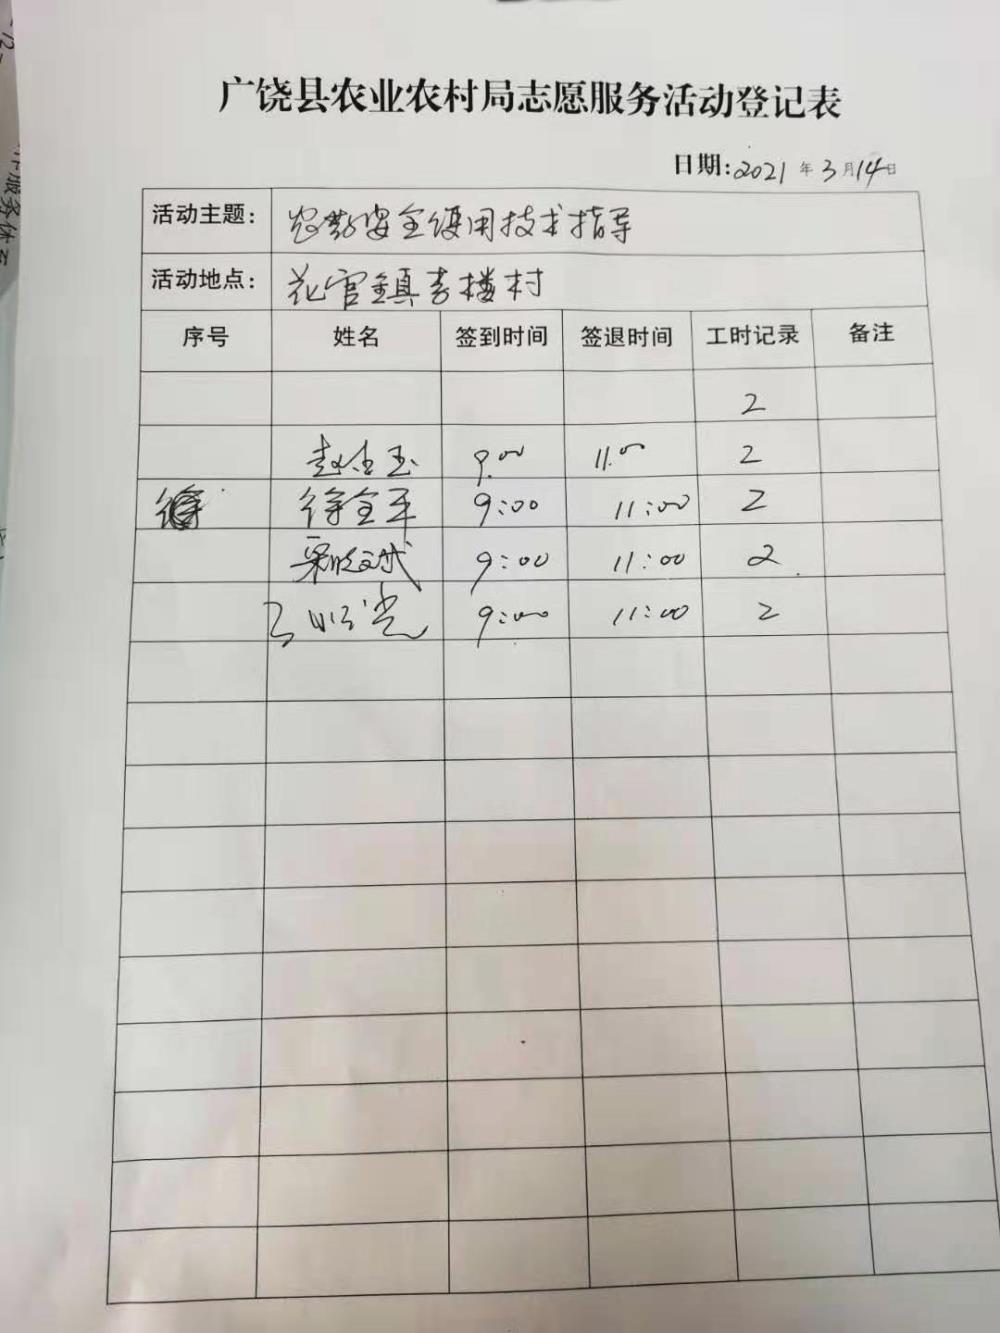 广饶县农业农村局志愿服务活动登记表
日期:2021年3月14日
活动主题: 农药安全使用技术指导
活动地点: 花官镇李楼村
序号 姓名 签到时间 签退时间 工时记录 备注
2
赵金玉 9:00 11:00 2
徐全平 9:00 11:00 2
9:00 11:00 2
9:00 11:00 2
服务体系